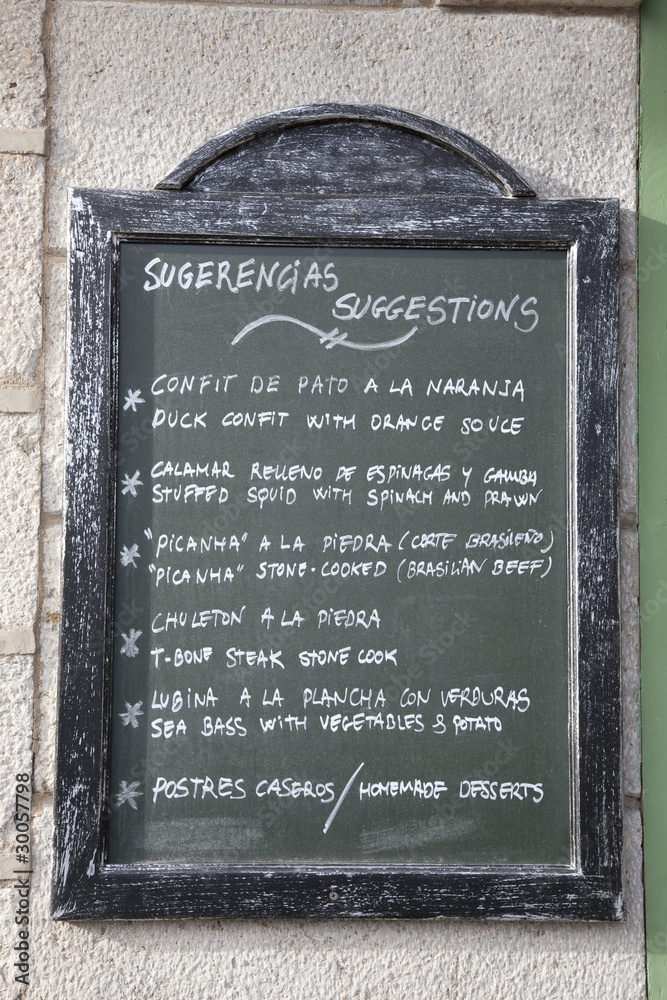 SUGERENCIAS
SUGGESTIONS
* CONFIT DE PATO A LA NARANJA
DUCK CONFIT WITH ORANGE SOUCE
* CALAMAR RELLENO DE ESPINAGAS Y GAMBA
STUFFED SQUID WITH SPINACH AND PRAWN
* "PICANHA" A LA PIEDRA (CORTE BRASILEÑO)
"PICANHA" STONE-COOKED (BRASILIAN BEEF)
* CHULETON A LA PIEDRA
T-BONE STEAK STONE COOK
* LUBINA A LA PLANCHA CON VERDURAS
SEA BASS WITH VEGETABLES & POTATO
* POSTRES CASEROS / HOMEMADE DESSERTS
Adobe Stock | #30057798